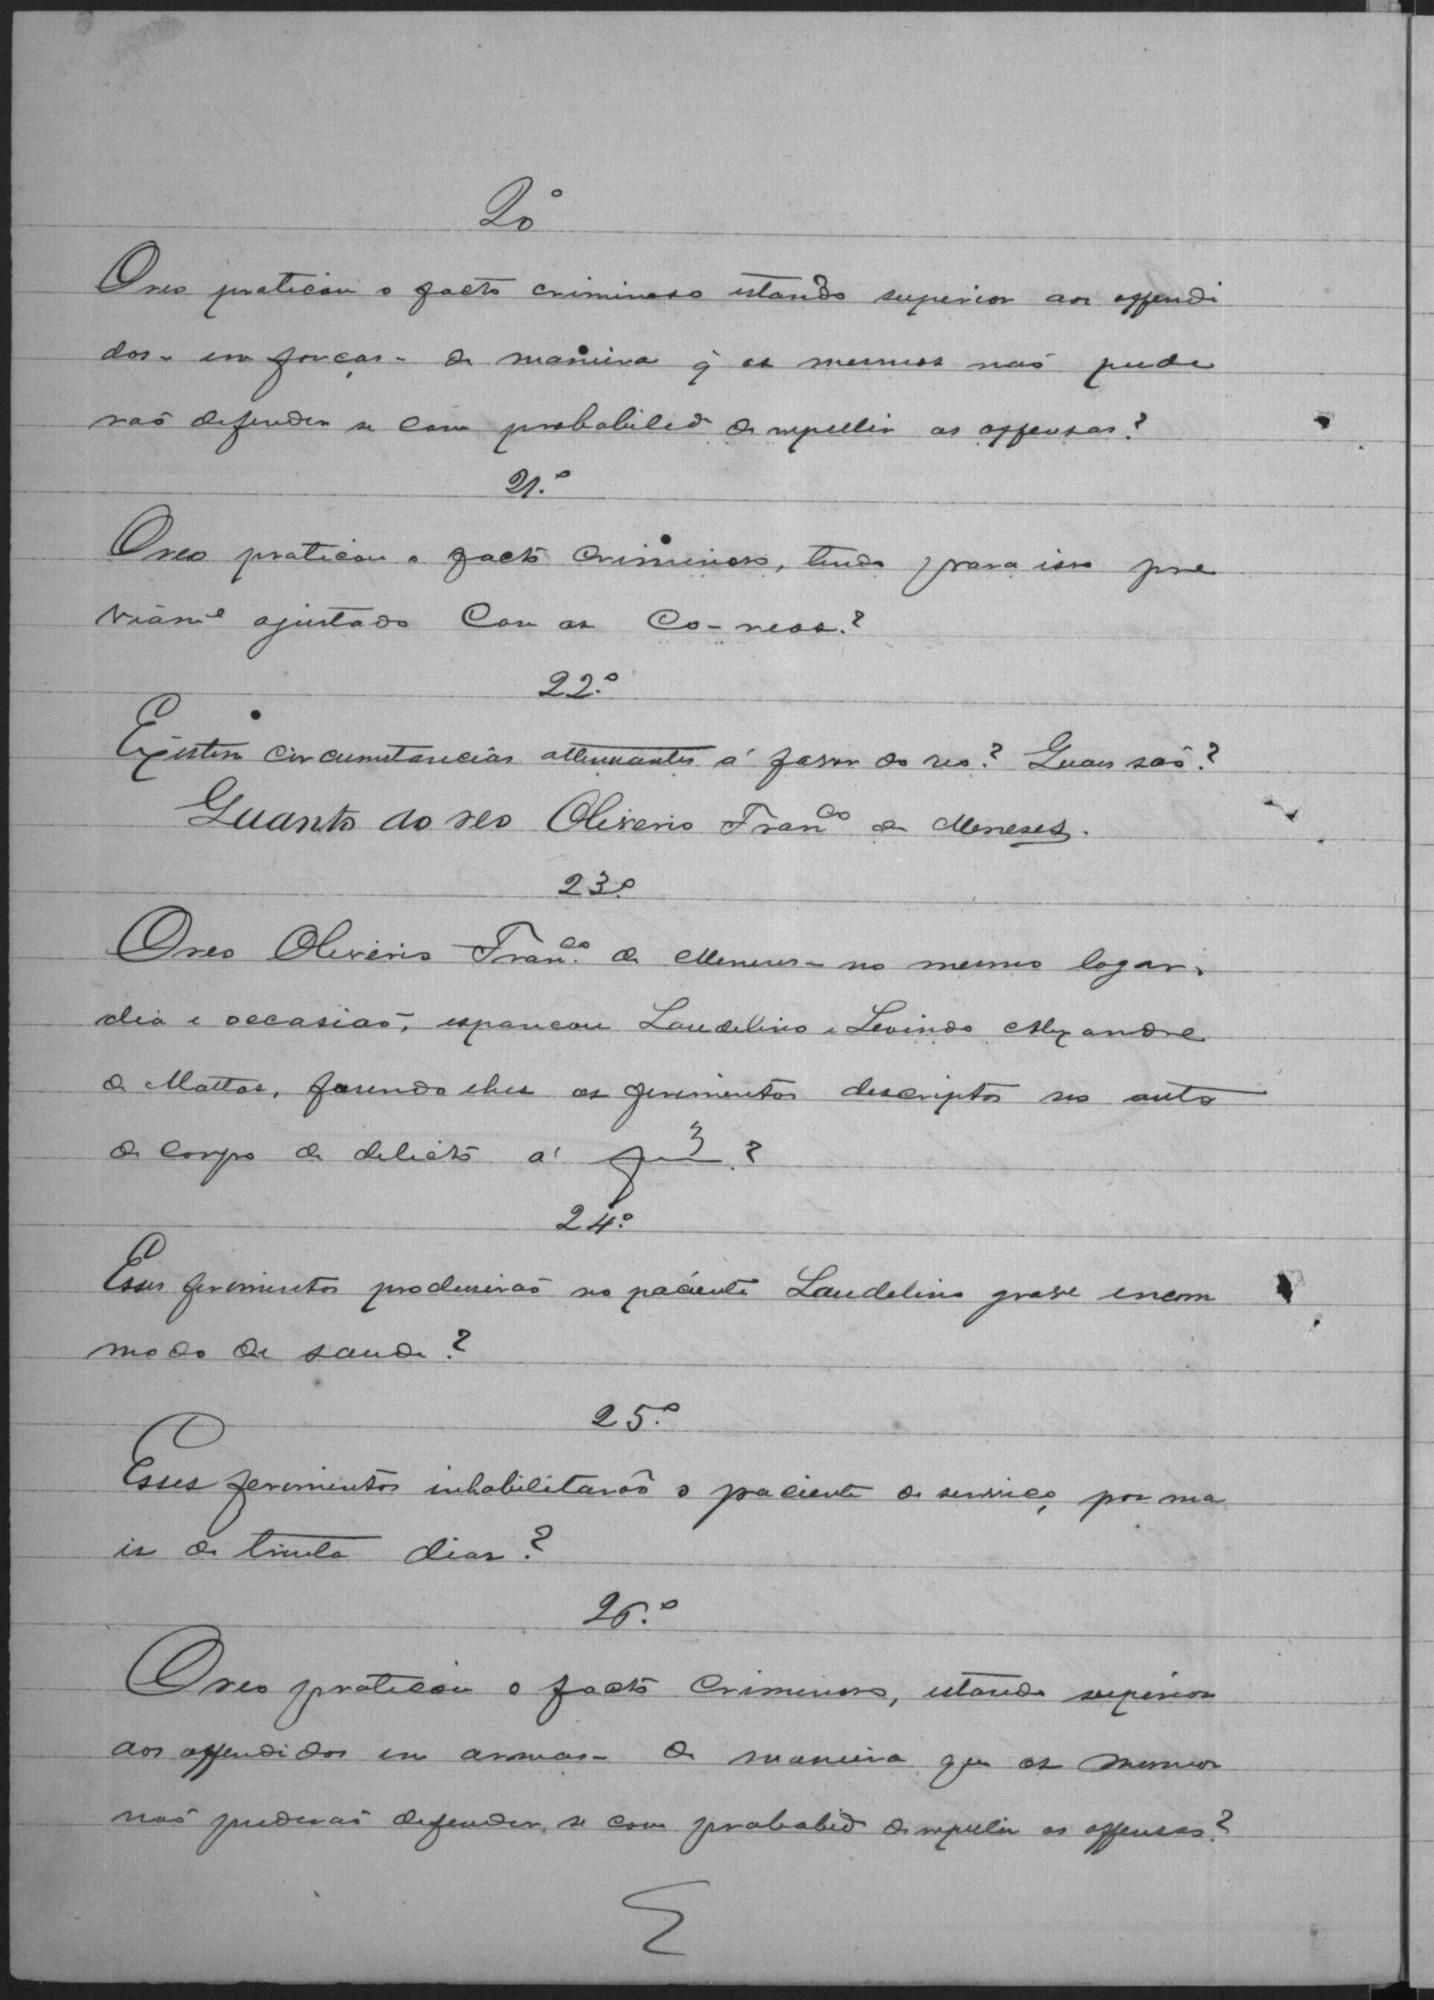 20º
O reo praticou o facto criminoso estando superior aos offendi
dos - em forças - de maneira q̃ os mesmos naõ pude
raõ defender se com probabilid.e de repellir as offensas?
21.º
O reo praticou o facto criminoso, tendo para isso pre
viam.e ajustado com os co-reos?
22.º
Existem circumstancias attenuantes á favor do reo? Quaes saõ?
Quanto ao reo Oliverio Fran.co de Meneses.
23.º
O reo Oliverio Fran.co de Meneses - no mesmo logar,
dia e occasiaõ, espancou Laudelino e Levindo Alexandre
de Mattos, fasendo lhes os ferimentos descriptos no auto
de corpo de delicto á f 3 ?
24.º
Esses ferimentos produsiraõ no paciente Laudelino grave incom
modo de saude?
25.º
Esses ferimentos inhabilitaraõ o paciente de serviço por ma
is de trinta dias?
26.º
O reo praticou o facto criminoso, estando superior
aos offendidos em armas - de maneira que os mesmos
naõ puderaõ defender se com probabid.e de repellir as offensas?